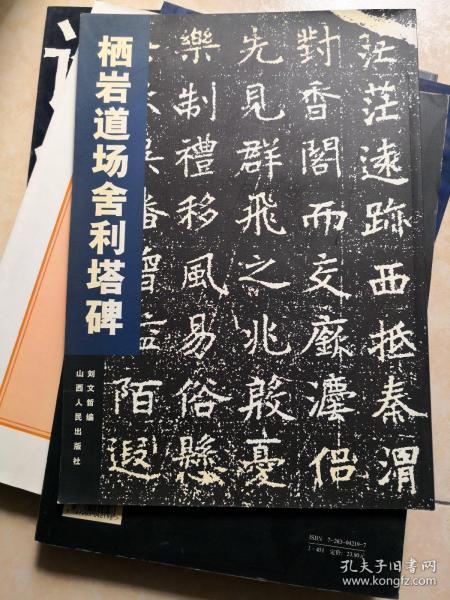 栖岩道场舍利塔碑
刘文哲编
山西人民出版社
茫茫遠跡西抵秦渭
對香閣而交廊瀍侣
先見群飛之兆殷憂
樂制禮移風易俗懸
陌遐
ISBN 7-203-04219-7
J·451 定价：23.80元
孔夫子旧书网